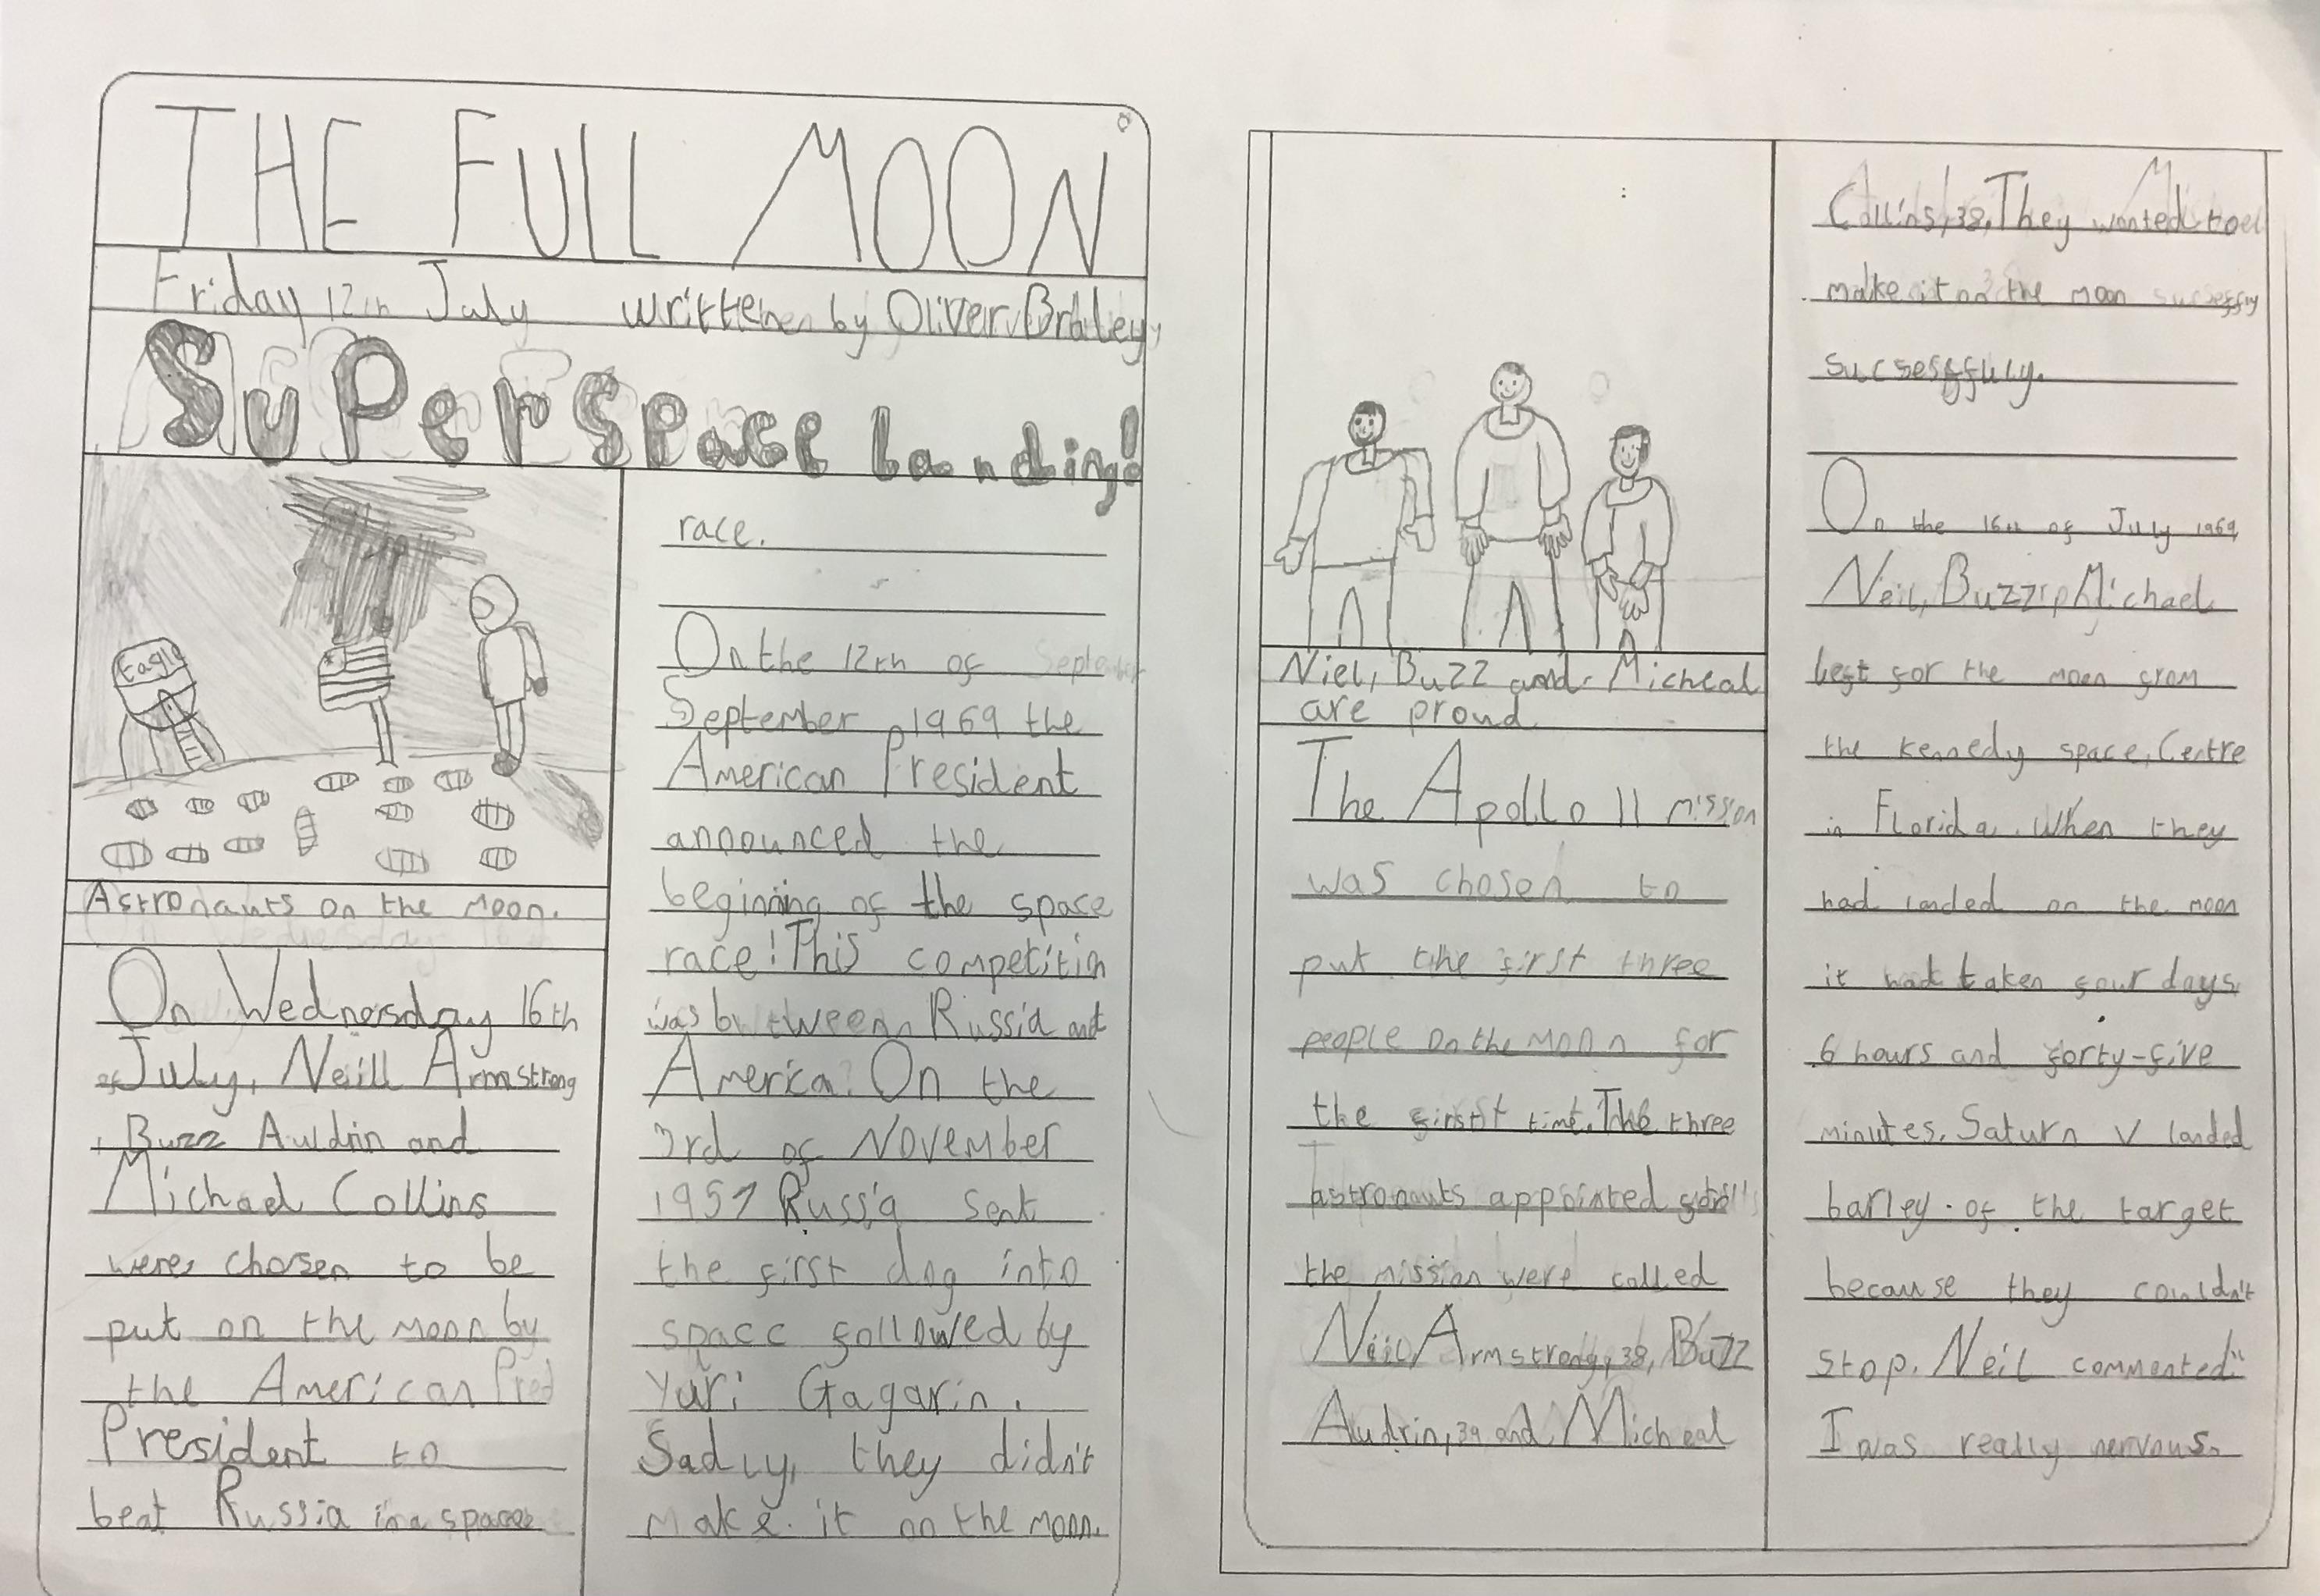 THE FULL MOON
Friday 12th July written by Oliver Braley
Super space landing!
Eagle
Astronauts on the Moon.
On Wednesday 16th
of July, Neill Armstrong
, Buzz Auldrin and
Michael Collins
were chosen to be
put on the moon by
the American
President to
beat Russia in a space
race.
On the 12th of
September 1969 the
American President
announced the
beginning of the space
race! This competitin
was between Russia and
America. On the
3rd of November
1957 Russia sent
the first dog into
space followed by
Yuri Gagarin.
Sadly, they didn't
make it on the moon.
Niel, Buzz and Micheal
are proud
The Apollo 11 mission
was chosen to
put the first three
people on the moon for
the first time. The three
astronauts appointed for
the mission were called
Neil Armstrong, 38, Buzz
Audrin, 39 and Micheal
Collins, 38. They wanted to
make it on the moon
sucsesffuly.
On the 16th of July 1969
Neil, Buzz, Michael
left for the moon from
the kennedy space, Centre
in Florida. When they
had landed on the moon
it had taken four days
6 hours and forty-five
minutes. Saturn V landed
barley of the target
because they couldn't
stop. Neil commented "
I was really nervous.